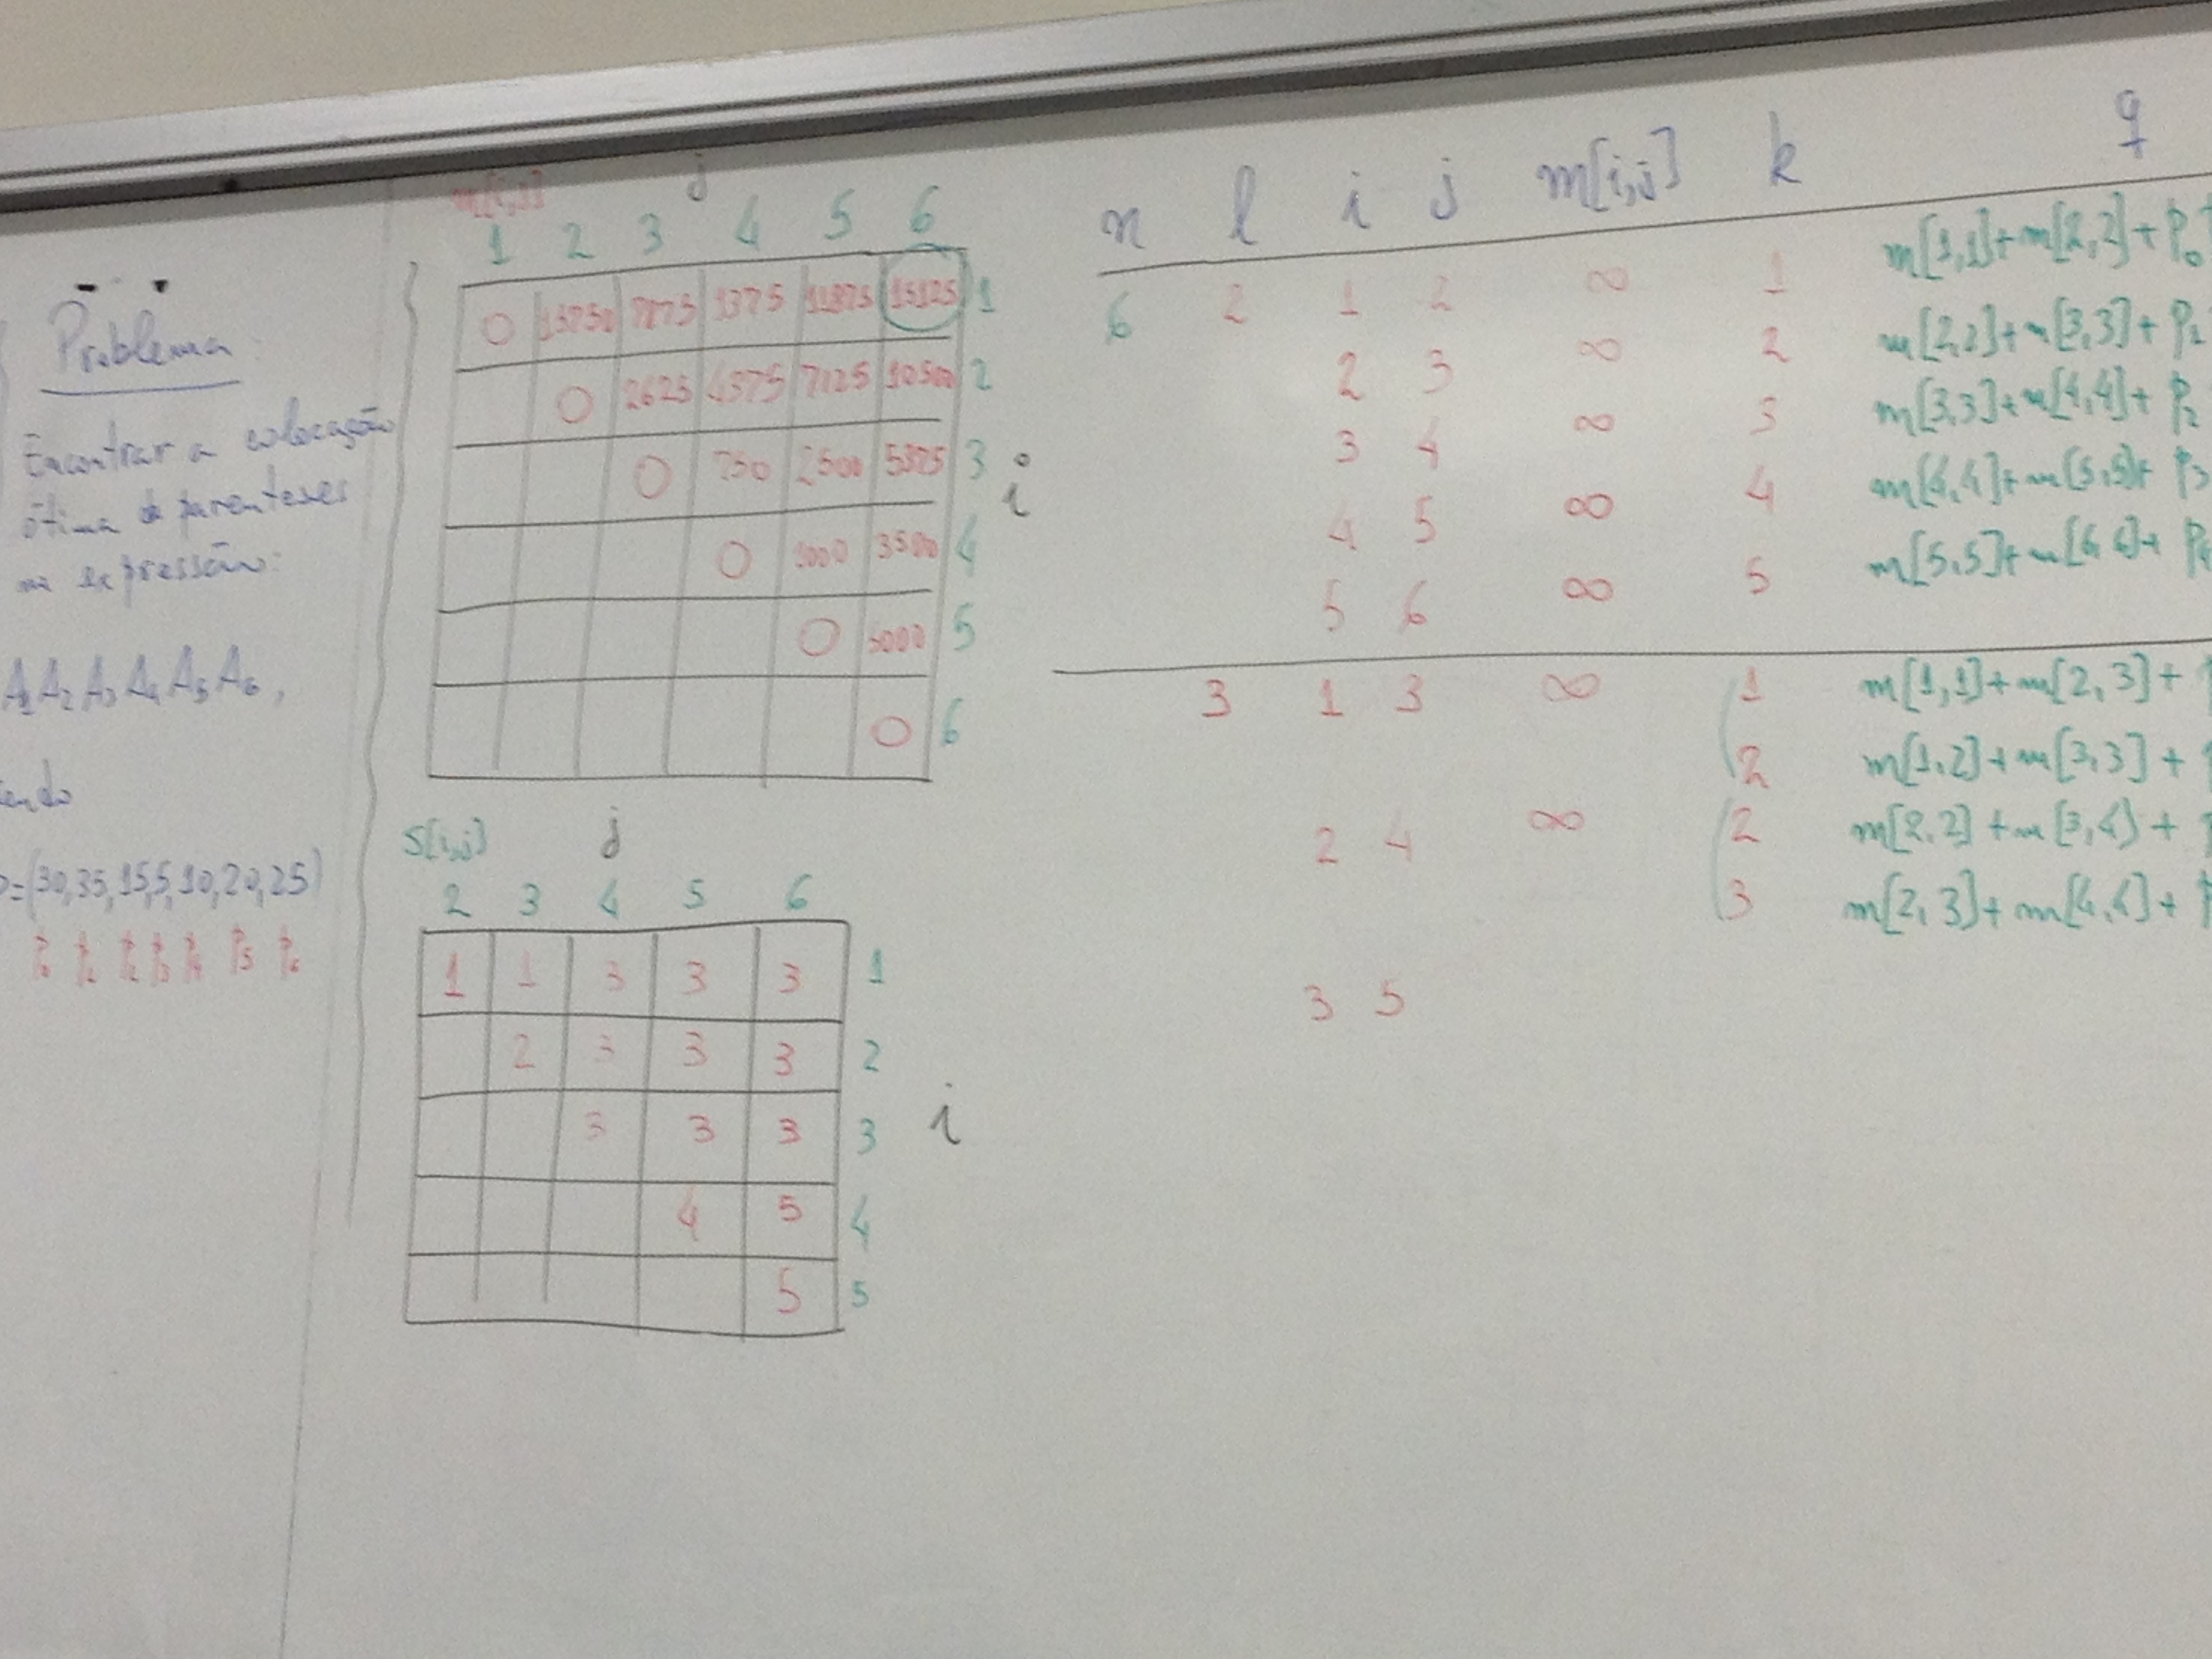 Problema:
Encontrar a colocação
ótima de parenteses
na expressão:
A1 A2 A3 A4 A5 A6,
=(30,35,15,5,10,20,25)
p0 p1 p2 p3 p4 p5 p6
m[i,j] j
1 2 3 4 5 6
0 15750 7875 9375 11875 15125 1
0 2625 4375 7125 10500 2
0 750 2500 5375 3
i
0 1000 3500 4
0 5000 5
0 6
s[i,j] j
2 3 4 5 6
1 1 3 3 3 1
2 3 3 3 2
3 3 3 3 i
4 5 4
5 5
n l i j m[i,j] k q
6 2 1 2 ∞ 1 m[1,1]+m[2,2]+p0
2 3 ∞ 2 m[2,2]+m[3,3]+p1
3 4 ∞ 3 m[3,3]+m[4,4]+p2
4 5 ∞ 4 m[4,4]+m[5,5]+p3
5 6 ∞ 5 m[5,5]+m[6,6]+p4
3 1 3 ∞ 1 m[1,1]+m[2,3]+
2 m[1,2]+m[3,3]+
2 4 ∞ 2 m[2,2]+m[3,4]+
3 m[2,3]+m[4,4]+
3 5